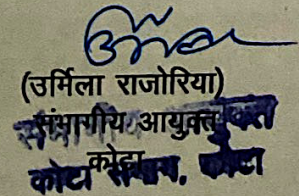 (उर्मिला राजोरिया)
संभागीय आयुक्त
कोटा
कोटा संभाग, कोटा